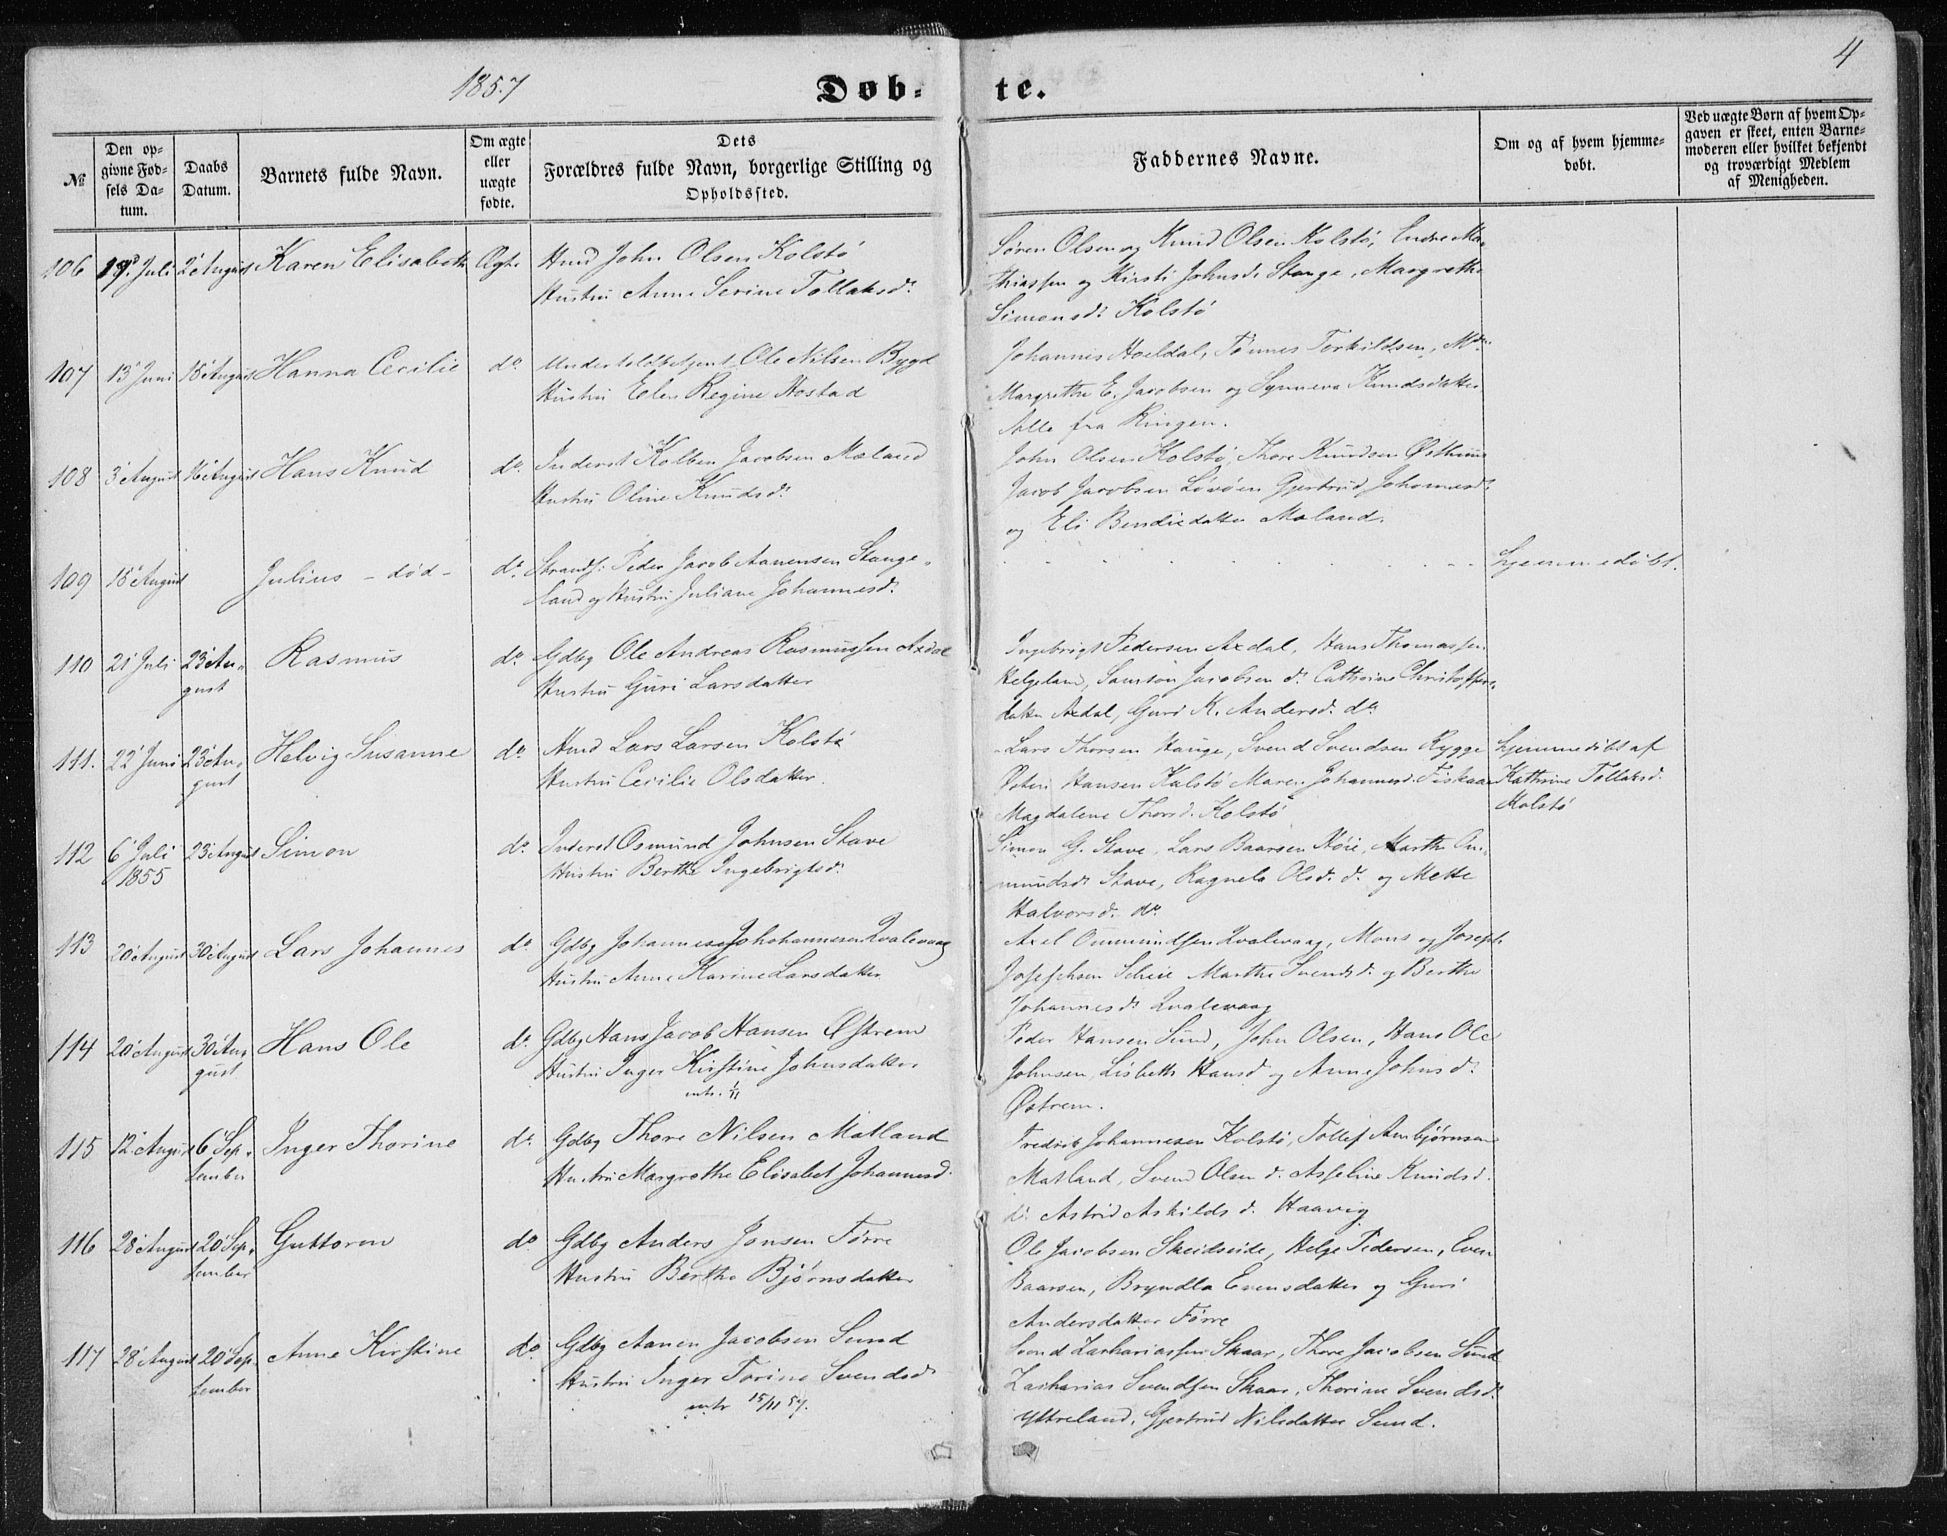 1857
Døb-
te.
4
№
Den op-
givne Fød-
sels Da-
tum.
Daabs
Datum.
Barnets fulde Navn.
Om ægte
eller
uægte
fødte.
Dets
Forældres fulde Navn, borgerlige Stilling og
Opholdssted.
Faddernes Navne.
Om og af hvem hjemme-
døbt.
Ved uægte Børn af hvem Op-
gaven er skeet, enten Barne-
moderen eller hvilket bekjendt
og troværdigt Medlem
af Menigheden.
106 Juli 2 August Karen Elisabeth Ægte Huusmd John Olsen Kolstø
Hustru Anne Serine Tollaksd:
Søren Olsen og Knud Olsen Kolstø, Endre Ma-
thiassen og Kirsti Johnsd: Stange, Margrethe
Simonsd: Kolstø
107 13 Juni 16 August Hanna Cecilie do Undertoldbetjent Ole Nilsen Bygd
Hustru Elen Regine Nostad
Johannes Hveldal, Tønnes Torkildsen,
Margrethe E. Jacobsen og Synneva Knudsdatter
Alle fra Ringen.
108 3 August 16 August Hans Knud do Inderst Kolben Jacobsen Mæland
Hustru Oline Knudsd:
John Olsen Kolstø, Thore Knudsen Østhuus
Jacob Jacobsen Løvøen Gjertrud Johannesd:
og Eli Bendixdatter Mæland.
109 18 August Julius - død - do Strands: Peder Jacob Aanensen Stange-
land og Hustru Juliane Johannesd:
hjemmedøbt.
110 21 Juli 23 Au-
gust
Rasmus do Gdbg Ole Andreas Rasmussen Axdal
Hustru Guri Larsdatter
Ingebrigt Pedersen Axdal, Hans Thomassen
Helgeland, Samson Jacobsen do Cathrine Christoffers-
datter Axdal, Guri K. Andersd: do
111. 22 Juni 23 Au-
gust
Helvig Susanne do Lars Larsen Kolstø
Hustru Cecilie Olsdatter
Lars Thorsen Hauge, Svend Svendsen Rygge
Hansen Kolstø Maren Johannesd: Fiskaaen
Magdalene Thorsd: Kolstø
hjemmedøbt af
Kathrine Tollaksd:
Kolstø
112 6 Juli
1855
23 August Simon do Inderst Osmund Johnsen Stave
Hustru Berthe Ingebrigtsd:
Simon G. Stave, Lars Baarsen Høie, Marthe Om-
mundsd: Stave, Ragnela Olsd: do og Mette
Halvorsd: do
113 20 August 30 August Lars Johannes do Gdbg Johannes Johohannesen Qvalevaag
Hustru Anne Karine Larsdatter
Axel Ommundsen Qvalevaag, Mons og Joseph
Josephsen Scheie Marthe Svendsd: og Berthe
Johannesd: Qvalevaag
114 20 August 30 Au
gust
Hans Ole do Gdbg Hans Jacob Hansen Østrem
Hustru Inger Kirstine Johnsdatter
intr. 1/11
Peder Hansen Sund, John Olsen, Hans Ole
Johnsen, Lisbeth Hansd og Anne Johnsd:
Østrem.
115 12 August 6 Sep-
tember
Inger Thorine do Gdbg Thore Nilsen Matland
Hustru Margrethe Elisabet Johannesd.
Fredrik Johannesen Kolstø, Tollef Aanbjørnsen
Matland, Svend Olsen do Asseline Knudsd.
do Astrid Askildsd. Haavig
116 28 August 20 Sep-
tember
Guttorm do Gdbg Anders Jonsen Førre
Hustru Berthe Bjørnsdatter
Ole Jacobsen Skeidseide, Helge Pedersen, Even
Baarsen, Bryndla Evensdatter og Guri
Andersdatter Førre
117 28 August 20 Sep-
tember
Anne Kirstine do Gdbg Aanen Jacobsen Sund
Hustru Inger Torine Svendsd:
intr 15/11 57.
Svend Zachariassen Skaar, Thore Jacobsen Sund
Zacharias Svendsen Skaar, Thorine Svendsd:
Ytreland, Gjertrud Nilsdatter Sund.